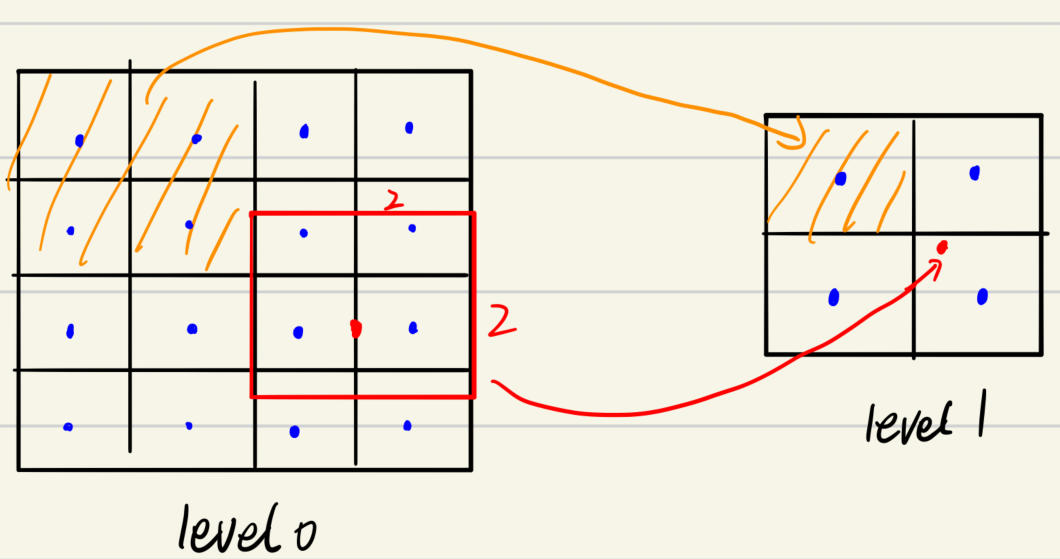 2
2
level 1
level 0